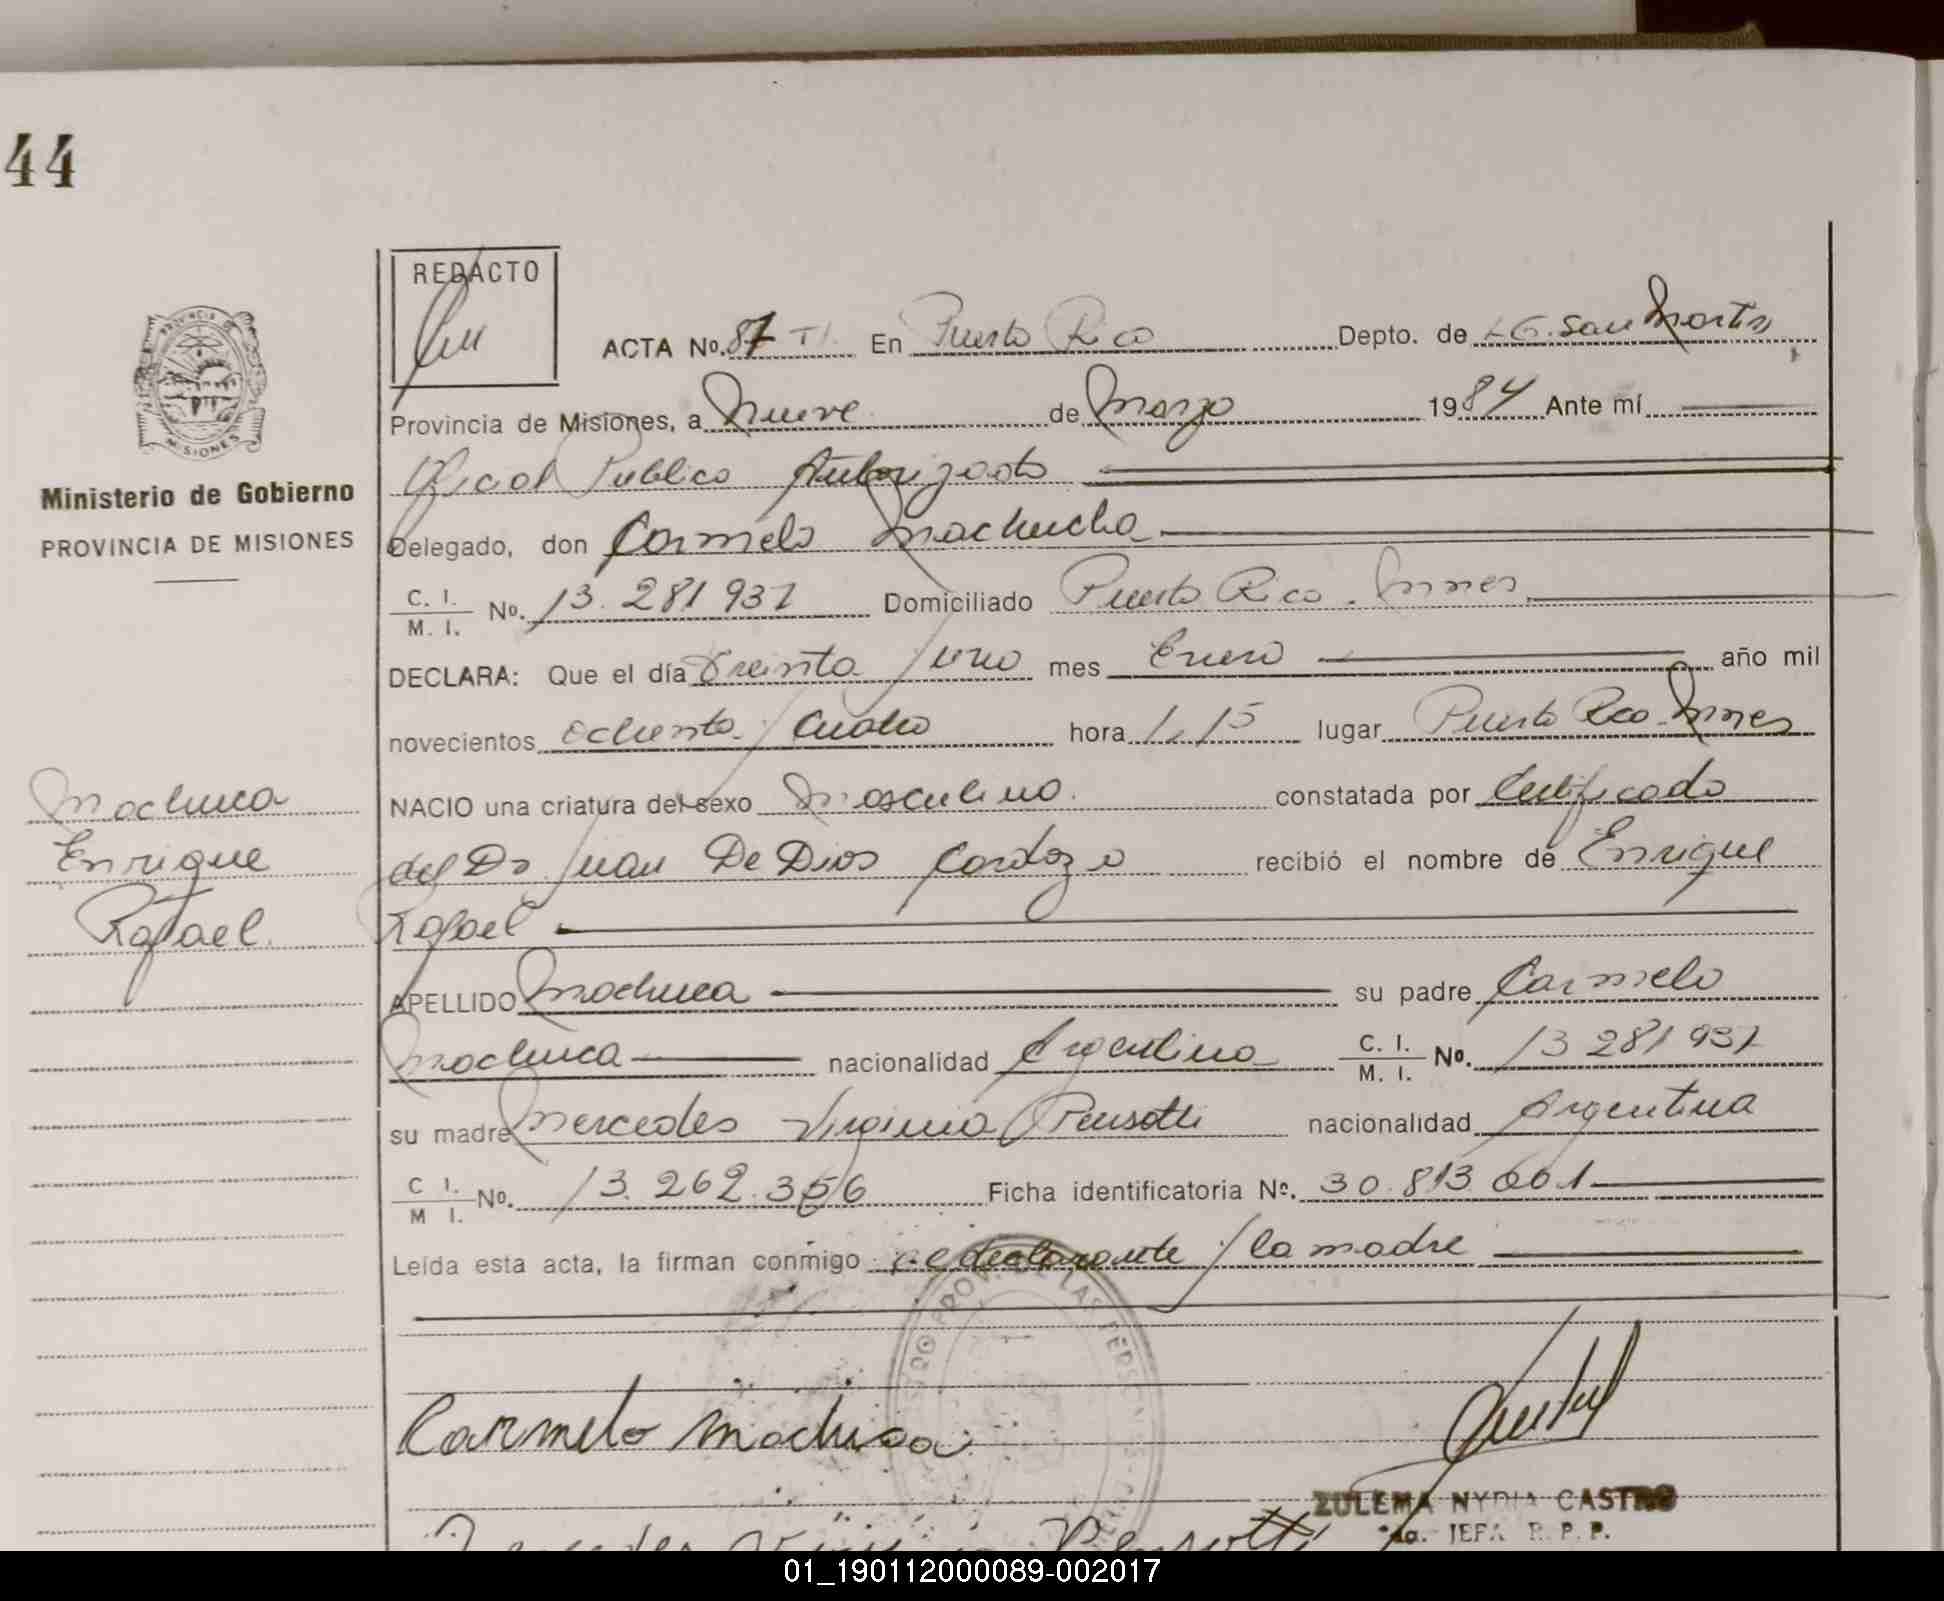 44
REDACTO
ACTA No. 87 TI. En Puerto Rico Depto. de L.G. San Martin
Provincia de Misiones, a Nueve de Marzo 1984 Ante mí
Oficial Publico Autorizado
Delegado, don Carmelo Machucha
C. I. M. I. No. 13.281931 Domiciliado Puerto Rico. Mnes.
DECLARA: Que el día Treinta y uno mes Enero año mil
novecientos ochenta y cuatro hora 1,15 lugar Puerto Rico Mnes
NACIO una criatura del sexo Masculino. constatada por Certificado
del Dr Juan De Dios Cardozo recibió el nombre de Enrique
Rafael
APELLIDO Machuca su padre Carmelo
Machuca nacionalidad Argentina C. I. M. I. No. 13281931
su madre Mercedes Virginia Pensotti nacionalidad Argentina
C I. M I. No. 13.262.356 Ficha identificatoria No. 30.813.001
Leída esta acta, la firman conmigo el declarante y la madre
Carmelo Machuca
ZULEMA NYDIA CASTRO
JEFA R. P. P.
PROVINCIA DE
MISIONES
Ministerio de Gobierno
PROVINCIA DE MISIONES
Machuca
Enrique
Rafael.
PROV. DE LAS PERSONAS
01_190112000089-002017